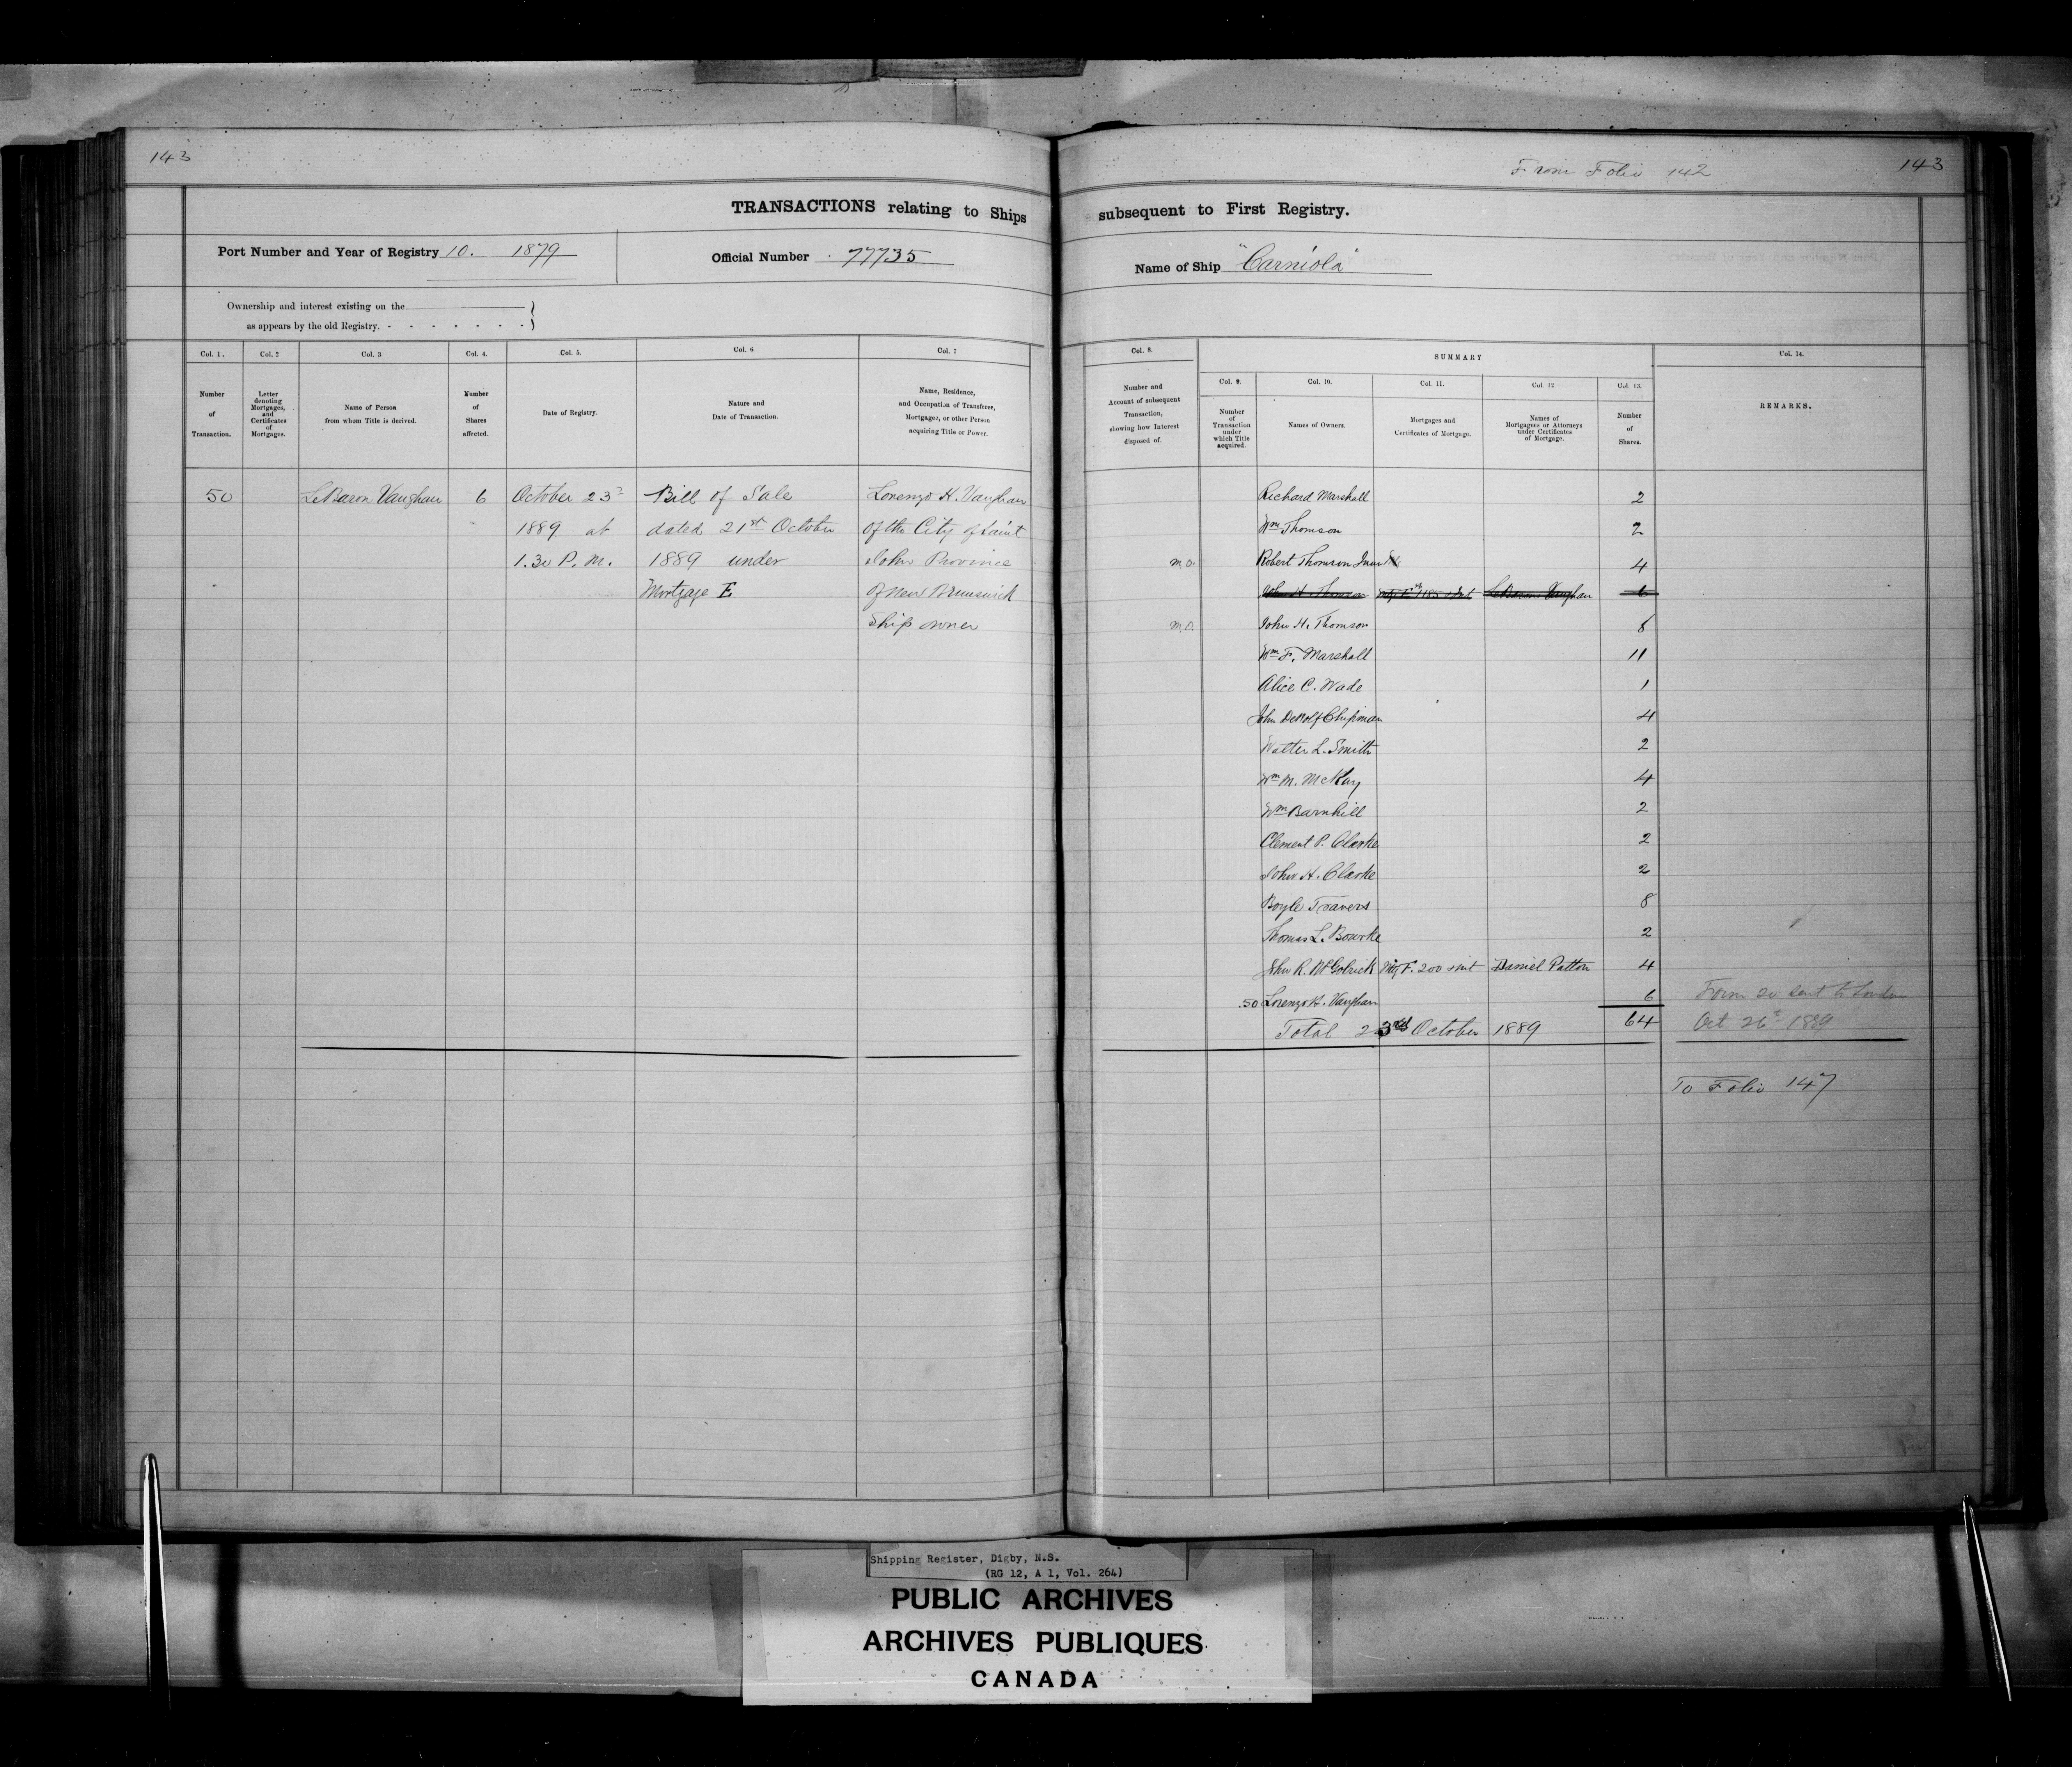 143
From Folio 142
143
TRANSACTIONS relating to Ships subsequent to First Registry.
Port Number and Year of Registry 10. 1879
Official Number 77735
Name of Ship "Carniola"
Ownership and interest existing on the
as appears by the old Registry.
Col. 1.
Col. 2
Col. 3
Col. 4.
Col. 5.
Col. 6
Col. 7
Number of Transaction.
Letter denoting Mortgages, and Certificates of Mortgages.
Name of Person from whom Title is derived.
Number of Shares affected.
Date of Registry.
Nature and Date of Transaction.
Name, Residence, and Occupation of Transferee, Mortgagee, or other Person acquiring Title or Power.
50 LeBaron Vaughan 6 October 23d Bill of Sale Lorenzo H. Vaughan
1889 at dated 21st October of the City of Saint
1.30 P. M. 1889 under John Province
Mortgage E of New Brunswick
Ship owner
Col. 8.
SUMMARY
Col. 14.
Col. 9.
Col. 10.
Col. 11.
Col. 12
Col. 13.
Number and Account of subsequent Transaction, showing how Interest disposed of.
Number of Transaction under which Title acquired.
Names of Owners.
Mortgages and Certificates of Mortgage.
Names of Mortgagees or Attorneys under Certificates of Mortgage.
Number of Shares.
REMARKS.
Richard Marshall 2
Wm Thomson 2
M.O. Robert Thomson Junr 4
John H. Thomson LeBaron Vaughan 6
M.O. John H. Thomson 8
Wm F. Marshall 11
Alice C. Wade 1
John DeWolf Chipman 4
Walter L. Smith 2
Wm M. McKay 4
Wm Barnhill 2
Clement P. Clarke 2
John H. Clarke 2
Boyle Travers 8
Thomas L. Bourke 2
John R. McGolrick Mtg F. 200 & int Daniel Patton 4
50 Lorenzo H. Vaughan 6 Form 20 sent to London
Total 23rd October 1889 64 Oct 26th 1889
To Folio 147
Shipping Register, Digby, N.S.
(RG 12, A 1, Vol. 264)
PUBLIC ARCHIVES
ARCHIVES PUBLIQUES
CANADA